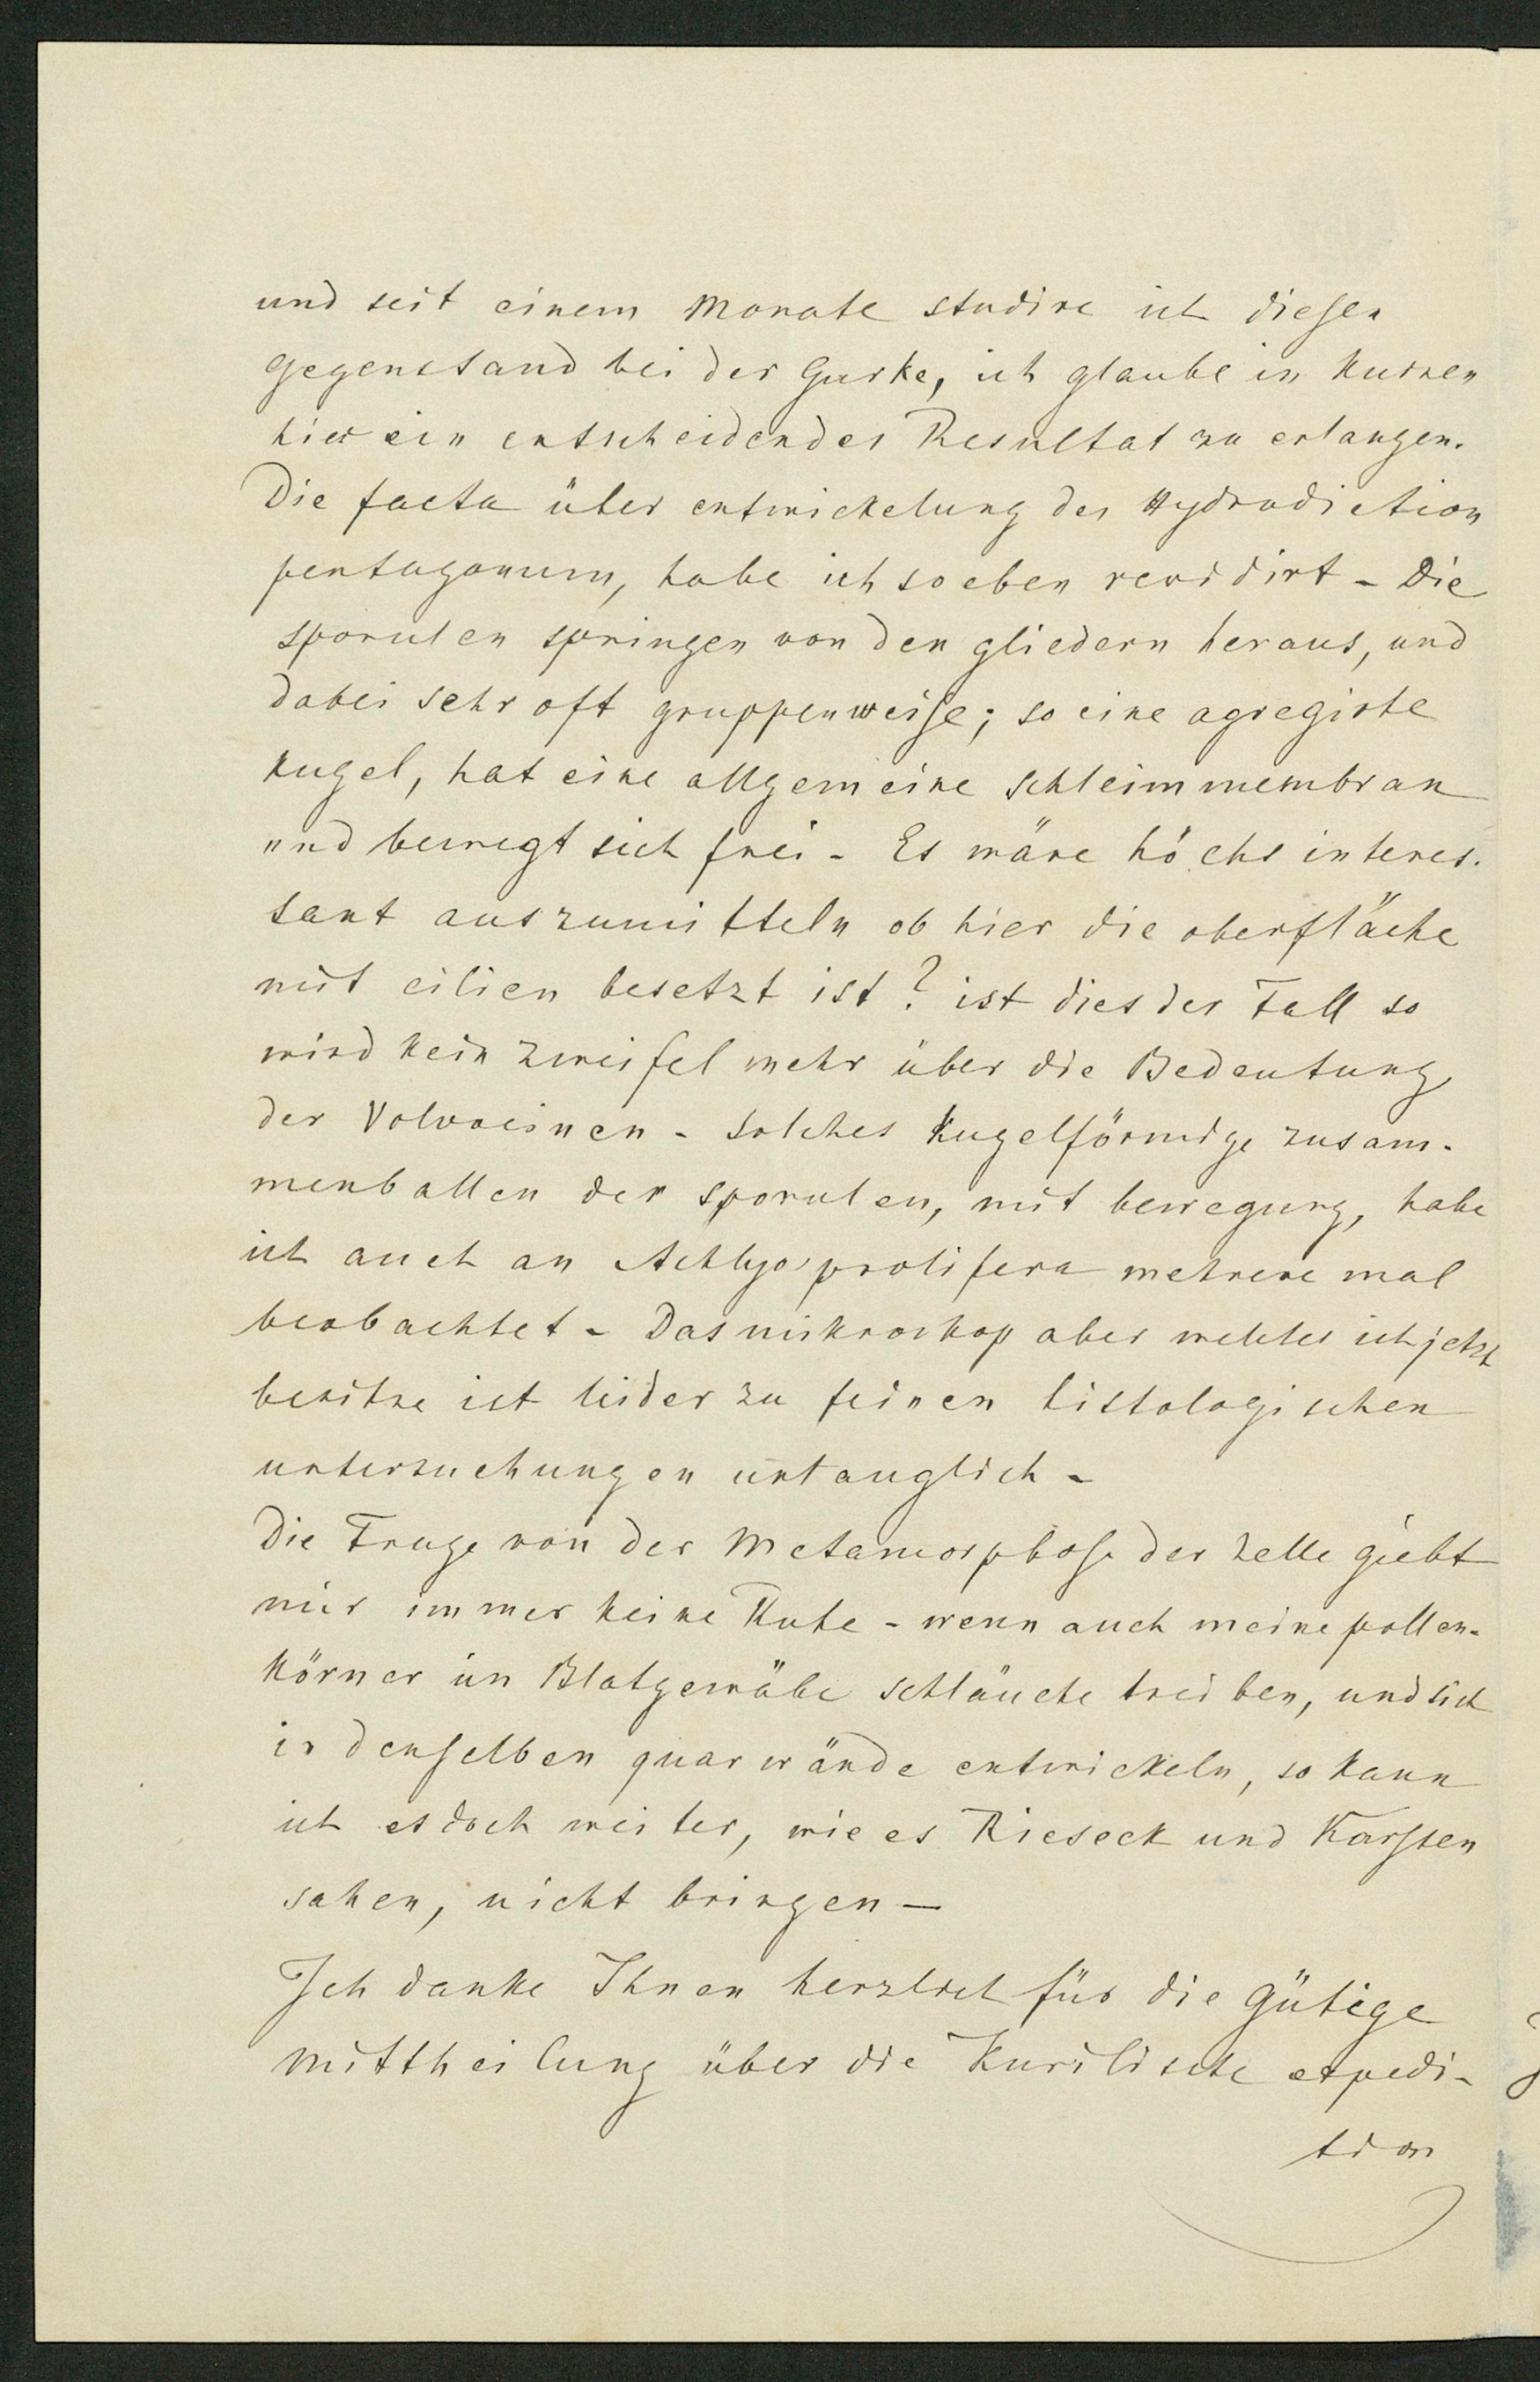 und seit einem Monate studire ich diesen
Gegenstand bei der Gurke, ich glaube in kurzen
hier ein entscheidendes Resultat zu erlangen.
Die facta über entwickelung des Hydrodiction
pentagonum, habe ich so eben revidirt - Die
sporulen springen von den gliedern heraus, und
dabei sehr oft gruppenweise; so eine agregirte
kugel, hat eine allgemeine schleimmembran
und bewegt sich frei - Es wäre höchs interes-
sant auszumitteln ob hier die oberfläche
mit cilien besetzt ist? ist dies der Fall so
wird kein zweifel mehr über die Bedeutung
der Volvocinen - solches kugelförmige zusam-
menballen der sporulen, mit bewegung, habe
ich auch an Achlya prolifera mehrere mal
beobachtet - Das mikroskop aber welches ich jetzt
besitze ist leider zu feinen histologischen
untersuchungen untauglich -
Die Frage von der Metamorphose der zelle giebt
mir immer keine Ruhe - wenn auch meine pollen-
körner im Blatgewäbe schläuche treiben, und sich
in denselben quarwände entwickeln, so kann
ich es doch weiter, wie es Rieseck und Karsten
sahen, nicht bringen —
Ich danke Ihnen herzlich für die gütige
mittheilung über die Kurilische expedi-
tion